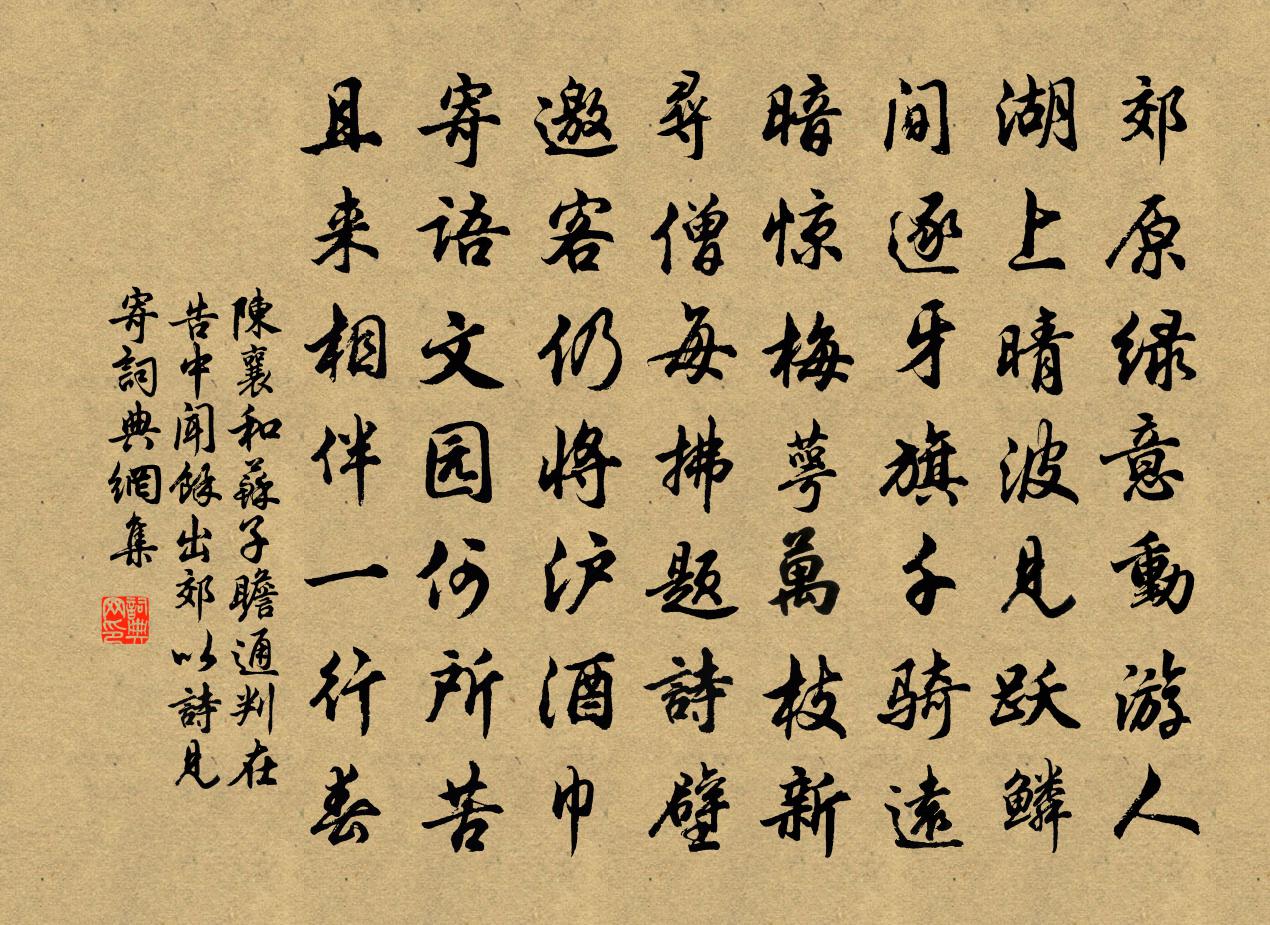 郊原绿意動游人
湖上晴波見跃鳞
间逐牙旗千骑遠
暗惊梅萼萬枝新
尋僧每拂题詩壁
邀客仍将沪酒巾
寄語文园何所苦
且来相伴一行春
陳襄和蘇子瞻通判在
告中聞餘出郊以詩見
寄詞典網集
詞典
网印